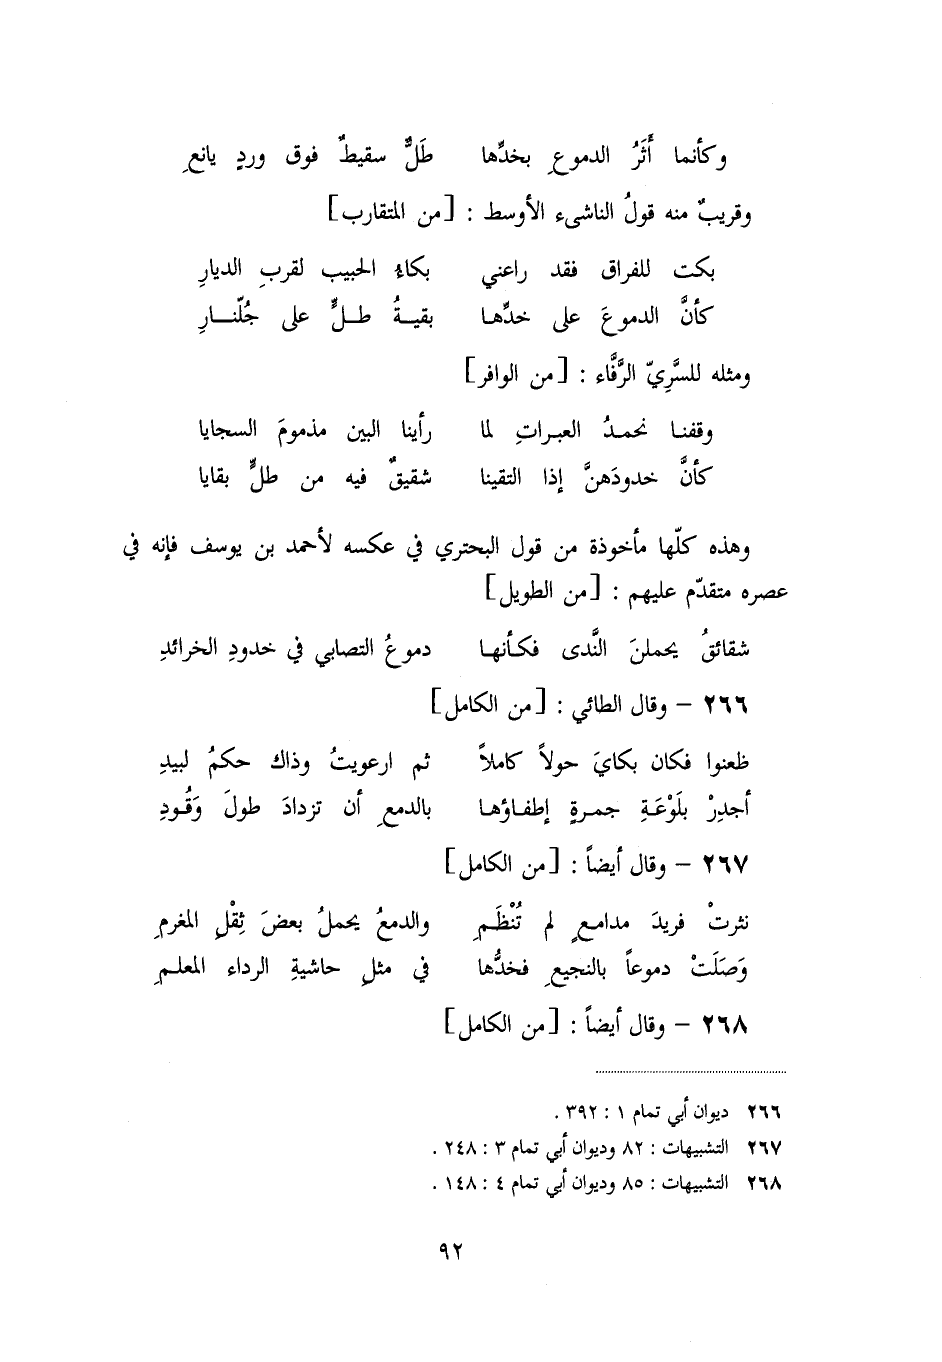 وكأنما أَثَرُ الدموعِ بخدِّها طَلٌّ سقيطٌ فوق وردٍ يانعِ
وقريبٌ منه قولُ الناشىء الأوسط : [من المتقارب]
بكت للفراق فقد راعني بكاءُ الحبيب لقربِ الديارِ
كأنَّ الدموعَ على خدِّها بقيةُ طلٍّ على جُلّنارِ
ومثله للسَّرِيّ الرَّفَّاء : [من الوافر]
وقفنا نحمدُ العبراتِ لما رأينا البين مذمومَ السجايا
كأنَّ خدودَهنَّ إذا التقينا شقيقٌ فيه من طلٍّ بقايا
وهذه كلّها مأخوذة من قول البحتري في عكسه لأحمد بن يوسف فإنه في
عصره متقدّم عليهم : [من الطويل]
شقائقُ يحملنَ النَّدى فكأنها دموعُ التصابي في خدودِ الخرائدِ
٢٦٦ – وقال الطائي : [من الكامل]
ظعنوا فكان بكايَ حولاً كاملاً ثم ارعويتُ وذاك حكمُ لبيدِ
أجدِرْ بلَوْعَةِ جمرةٍ إطفاؤها بالدمعِ أن تزدادَ طولَ وَقُودِ
٢٦٧ – وقال أيضاً : [من الكامل]
نثرتْ فريدَ مدامعٍ لم تُنْظَمِ والدمعُ يحملُ بعضَ ثِقْلِ المغرمِ
وَصَلَتْ دموعاً بالنجيعِ فخدُّها في مثلِ حاشيةِ الرداء المعلمِ
٢٦٨ – وقال أيضاً : [من الكامل]
٢٦٦ ديوان أبي تمام ١ : ٣٩٢ .
٢٦٧ التشبيهات : ٨٢ وديوان أبي تمام ٣ : ٢٤٨ .
٢٦٨ التشبيهات : ٨٥ وديوان أبي تمام ٤ : ١٤٨ .
٩٢